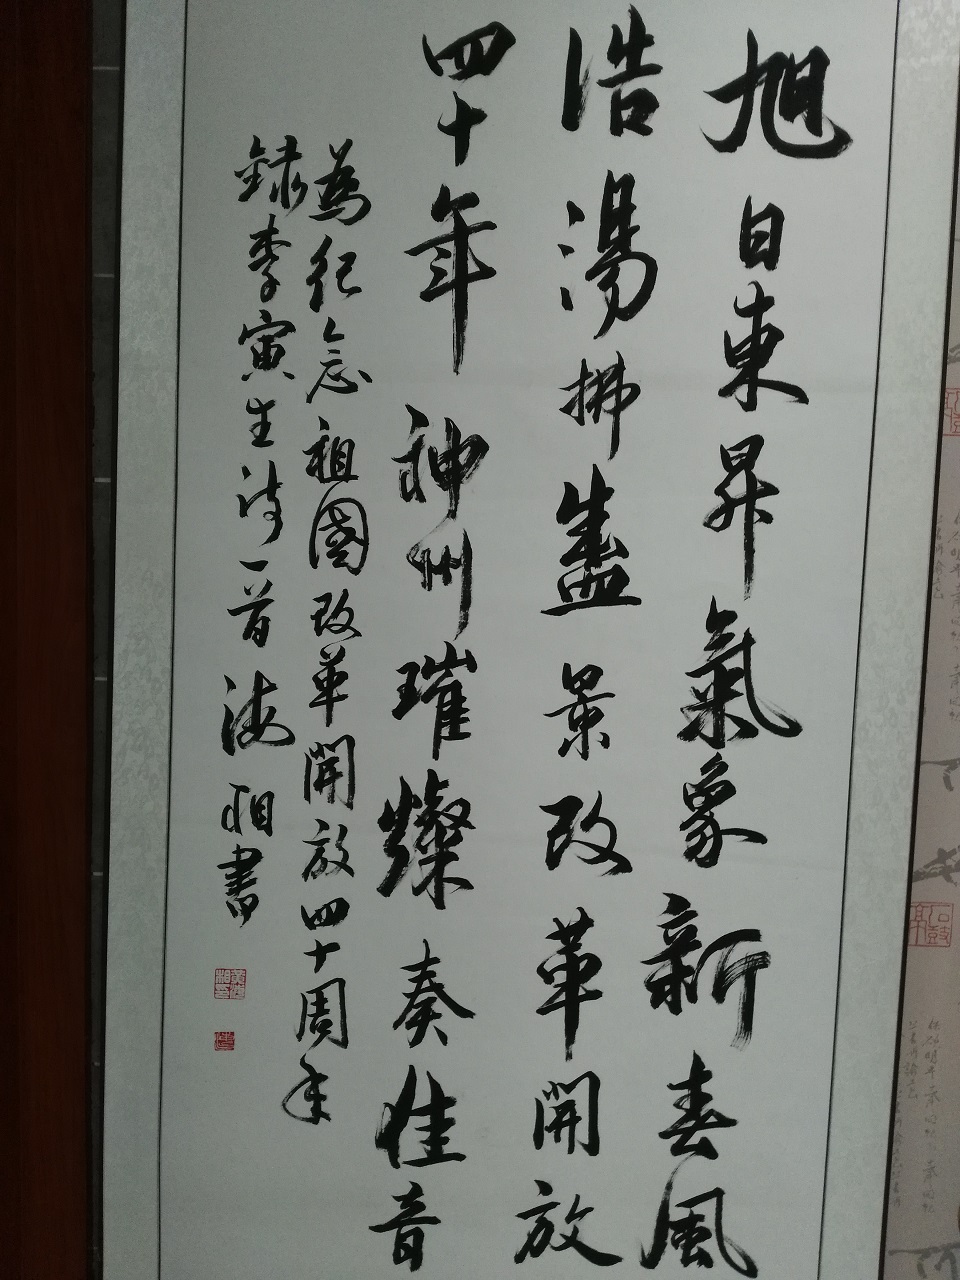 旭日東昇氣象新春風
浩湯拂盡景改革開放
四十年神州璀燦奏佳音
為紀念祖國改革開放四十周年
錄李寅生詩一首海相書
石鼓